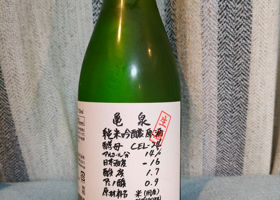 亀泉
生
純米吟醸原酒
酵母 CEL-24
アルコール分 14%
日本酒度 -16
酸度 1.7
アミノ酸 0.9
原材料名 米(国産)